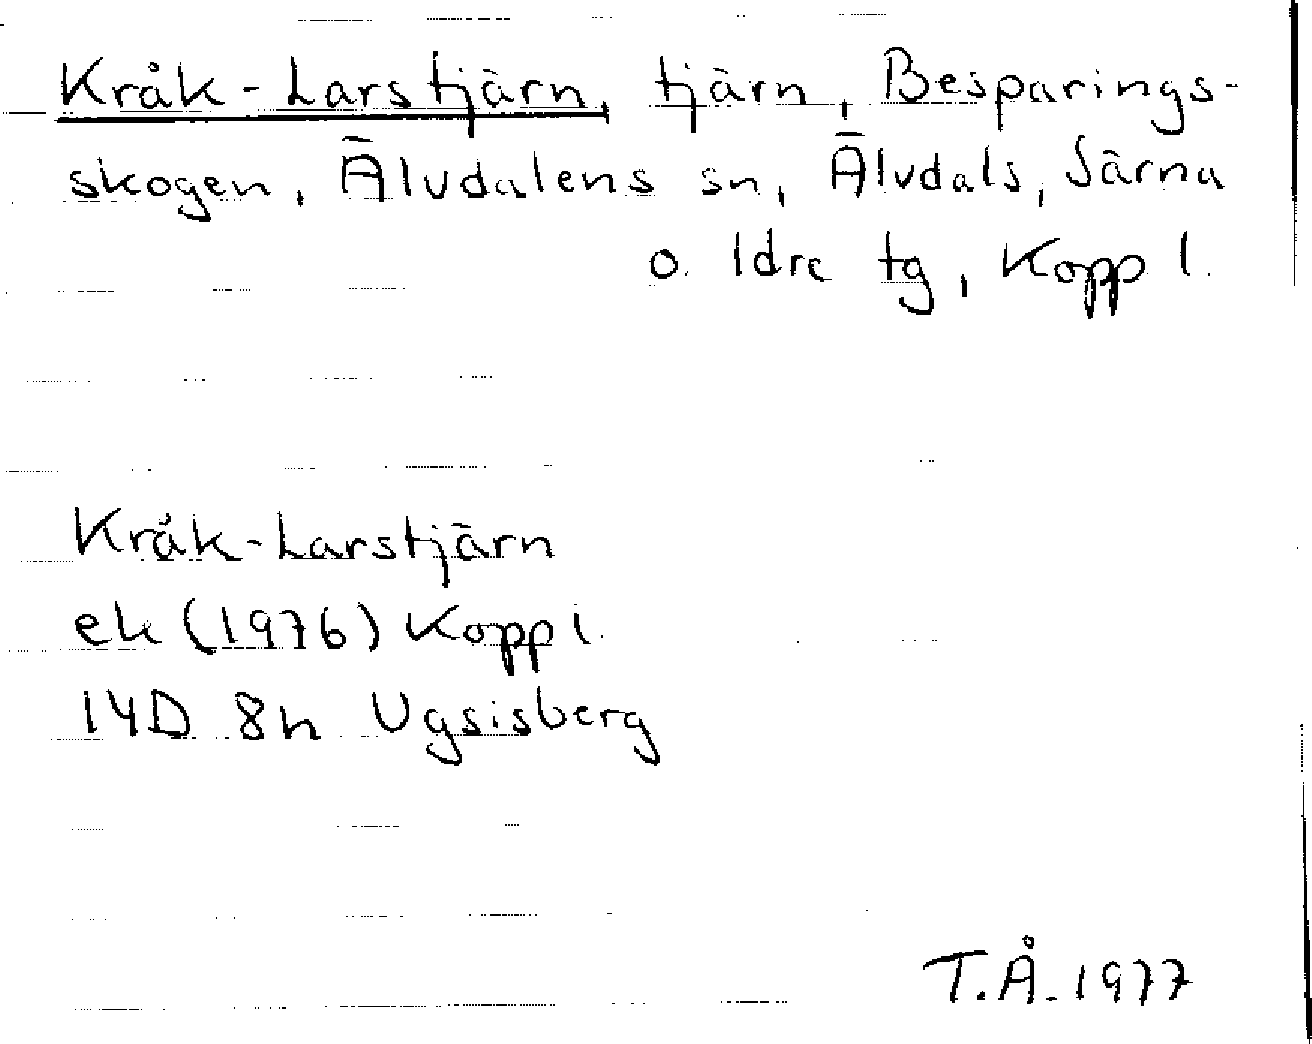 Kråk-Larstjärn, tjärn, Besparings-
skogen, Älvdalens sn, Älvdals, Särna
o. Idre tg, Kopp l.
Kråk-Larstjärn
ek (1976) Kopp l.
14D 8h Ugsisberg
T.Å. 1977